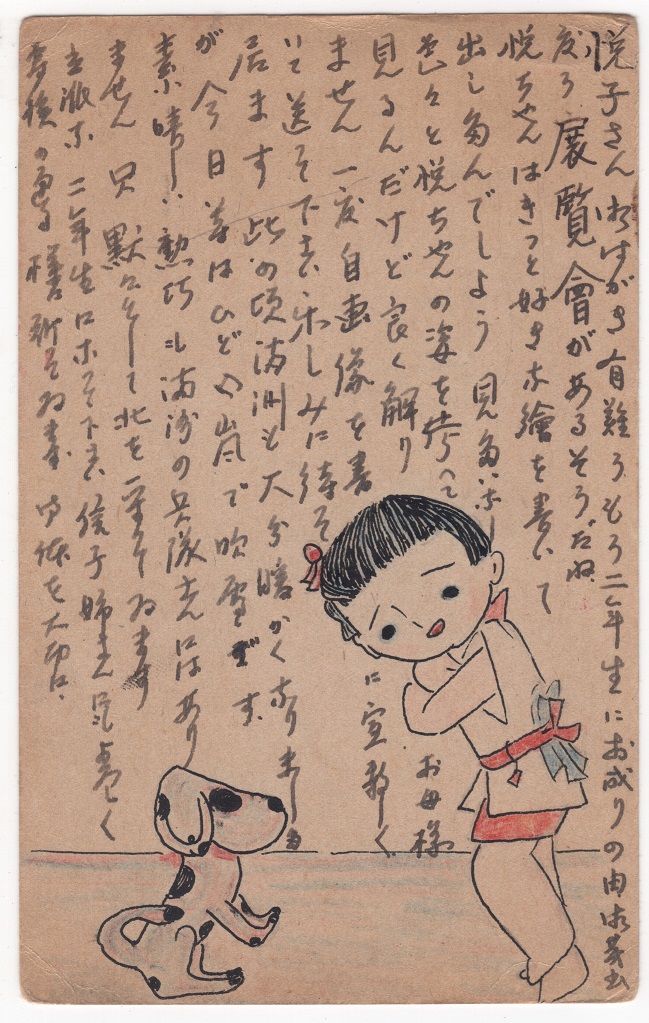 悦子さん おはがき有難う もう二年生にお成りの由 御芽出
度う 展覧會があるそうだね
悦ちゃんはきっと好きな繪を書いて
出し多んでしよう 見多いな
色々と悦ちやんの姿を考へて
見るんだけど良く解り
ません 一度自画像を書
いて送って下さい 楽しみに待って
居ます 此の頃満洲も大分暖かくなりました
が今日等はひどい嵐で吹雪です
素晴しい 満洲の兵隊さんにはあり
ません 只黙々として北を守てゐます
立派な二年生になって下さい 信子姉さん
の勇 ゐます 御体を大切に
お母様
に宜敷く